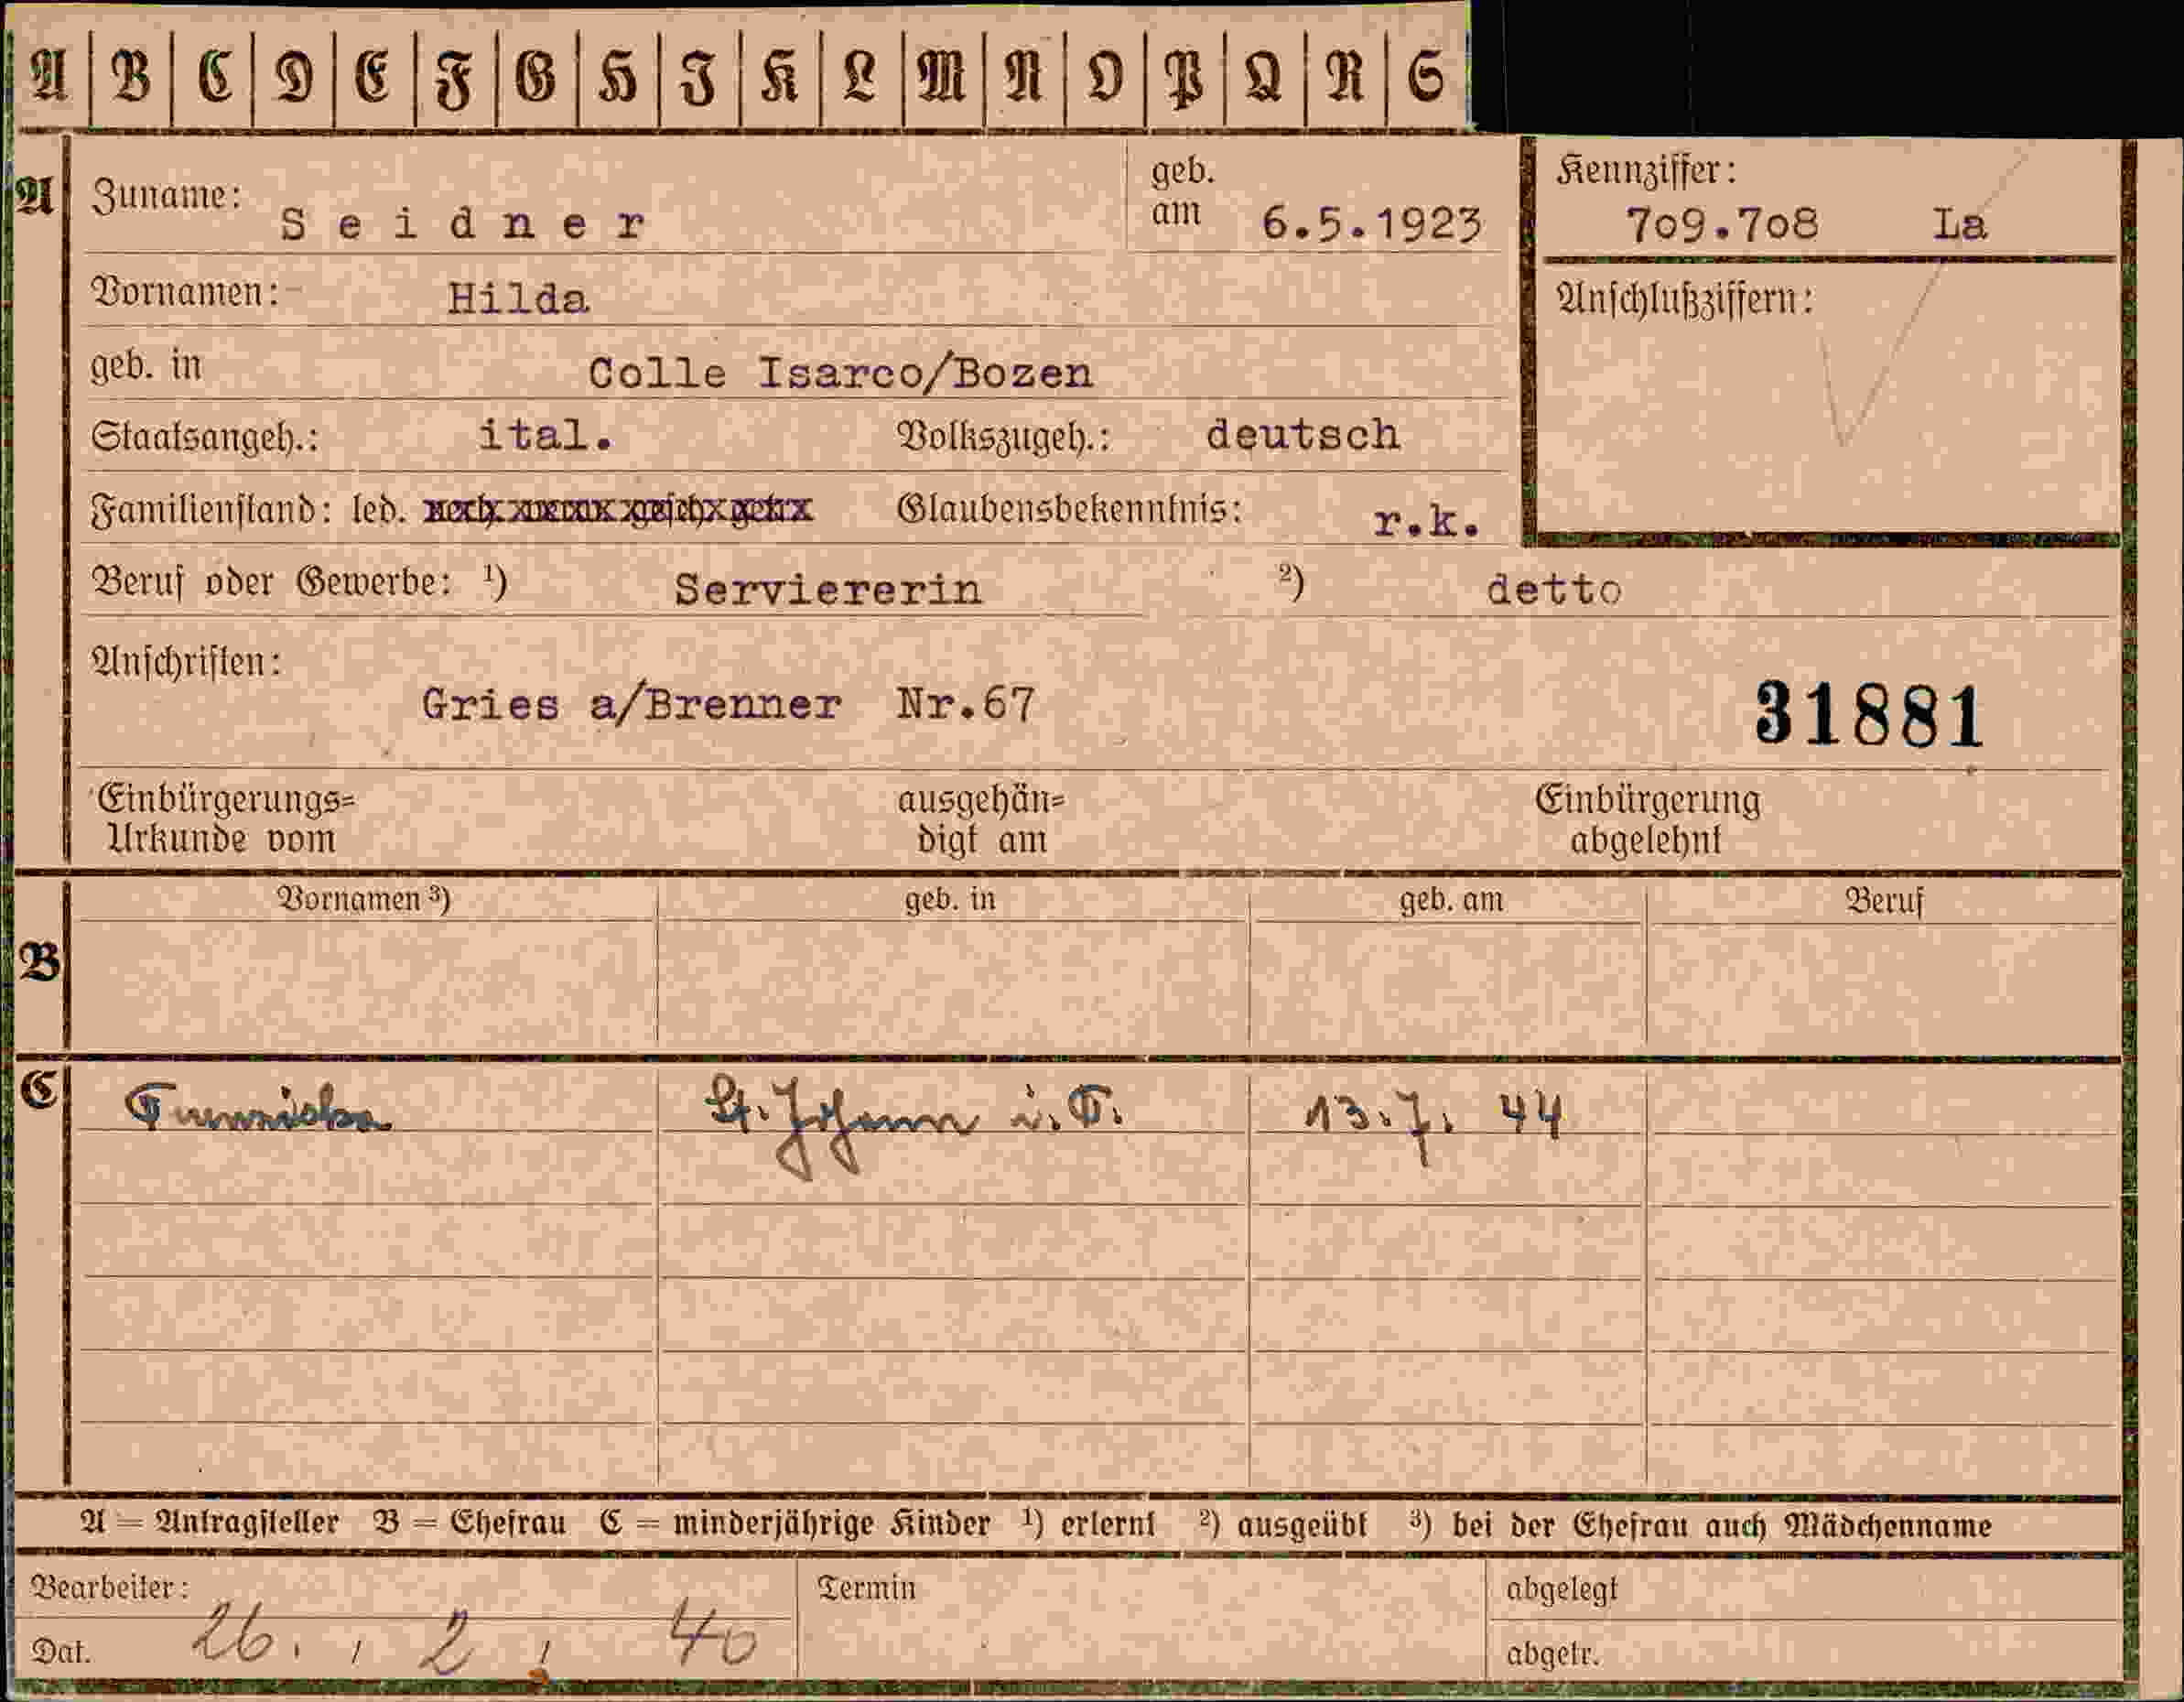 A B C D E F G H I K L M N O P Q R S
A
Zuname: Seidner
geb. am 6.5.1923
Kennziffer: 709.708 La
Vornamen: Hilda
Anschlußziffern:
geb. in Colle Isarco/Bozen
Staatsangeh.: ital. Volkszugeh.: deutsch
Familienstand: led. Glaubensbekenntnis: r.k.
Beruf oder Gewerbe: ¹) Serviererin ²) detto
Anschriften:
Gries a/Brenner Nr.67 31881
Einbürgerungs= ausgehän= Einbürgerung
Urkunde vom digt am abgelehnt
B
Vornamen ³) geb. in geb. am Beruf
C
St. Johann i. T. 13.7. 44
A = Antragsteller B = Ehefrau C = minderjährige Kinder ¹) erlernt ²) ausgeübt ³) bei der Ehefrau auch Mädchenname
Bearbeiter: Termin abgelegt
Dat. 26. 2. 40 abgetr.